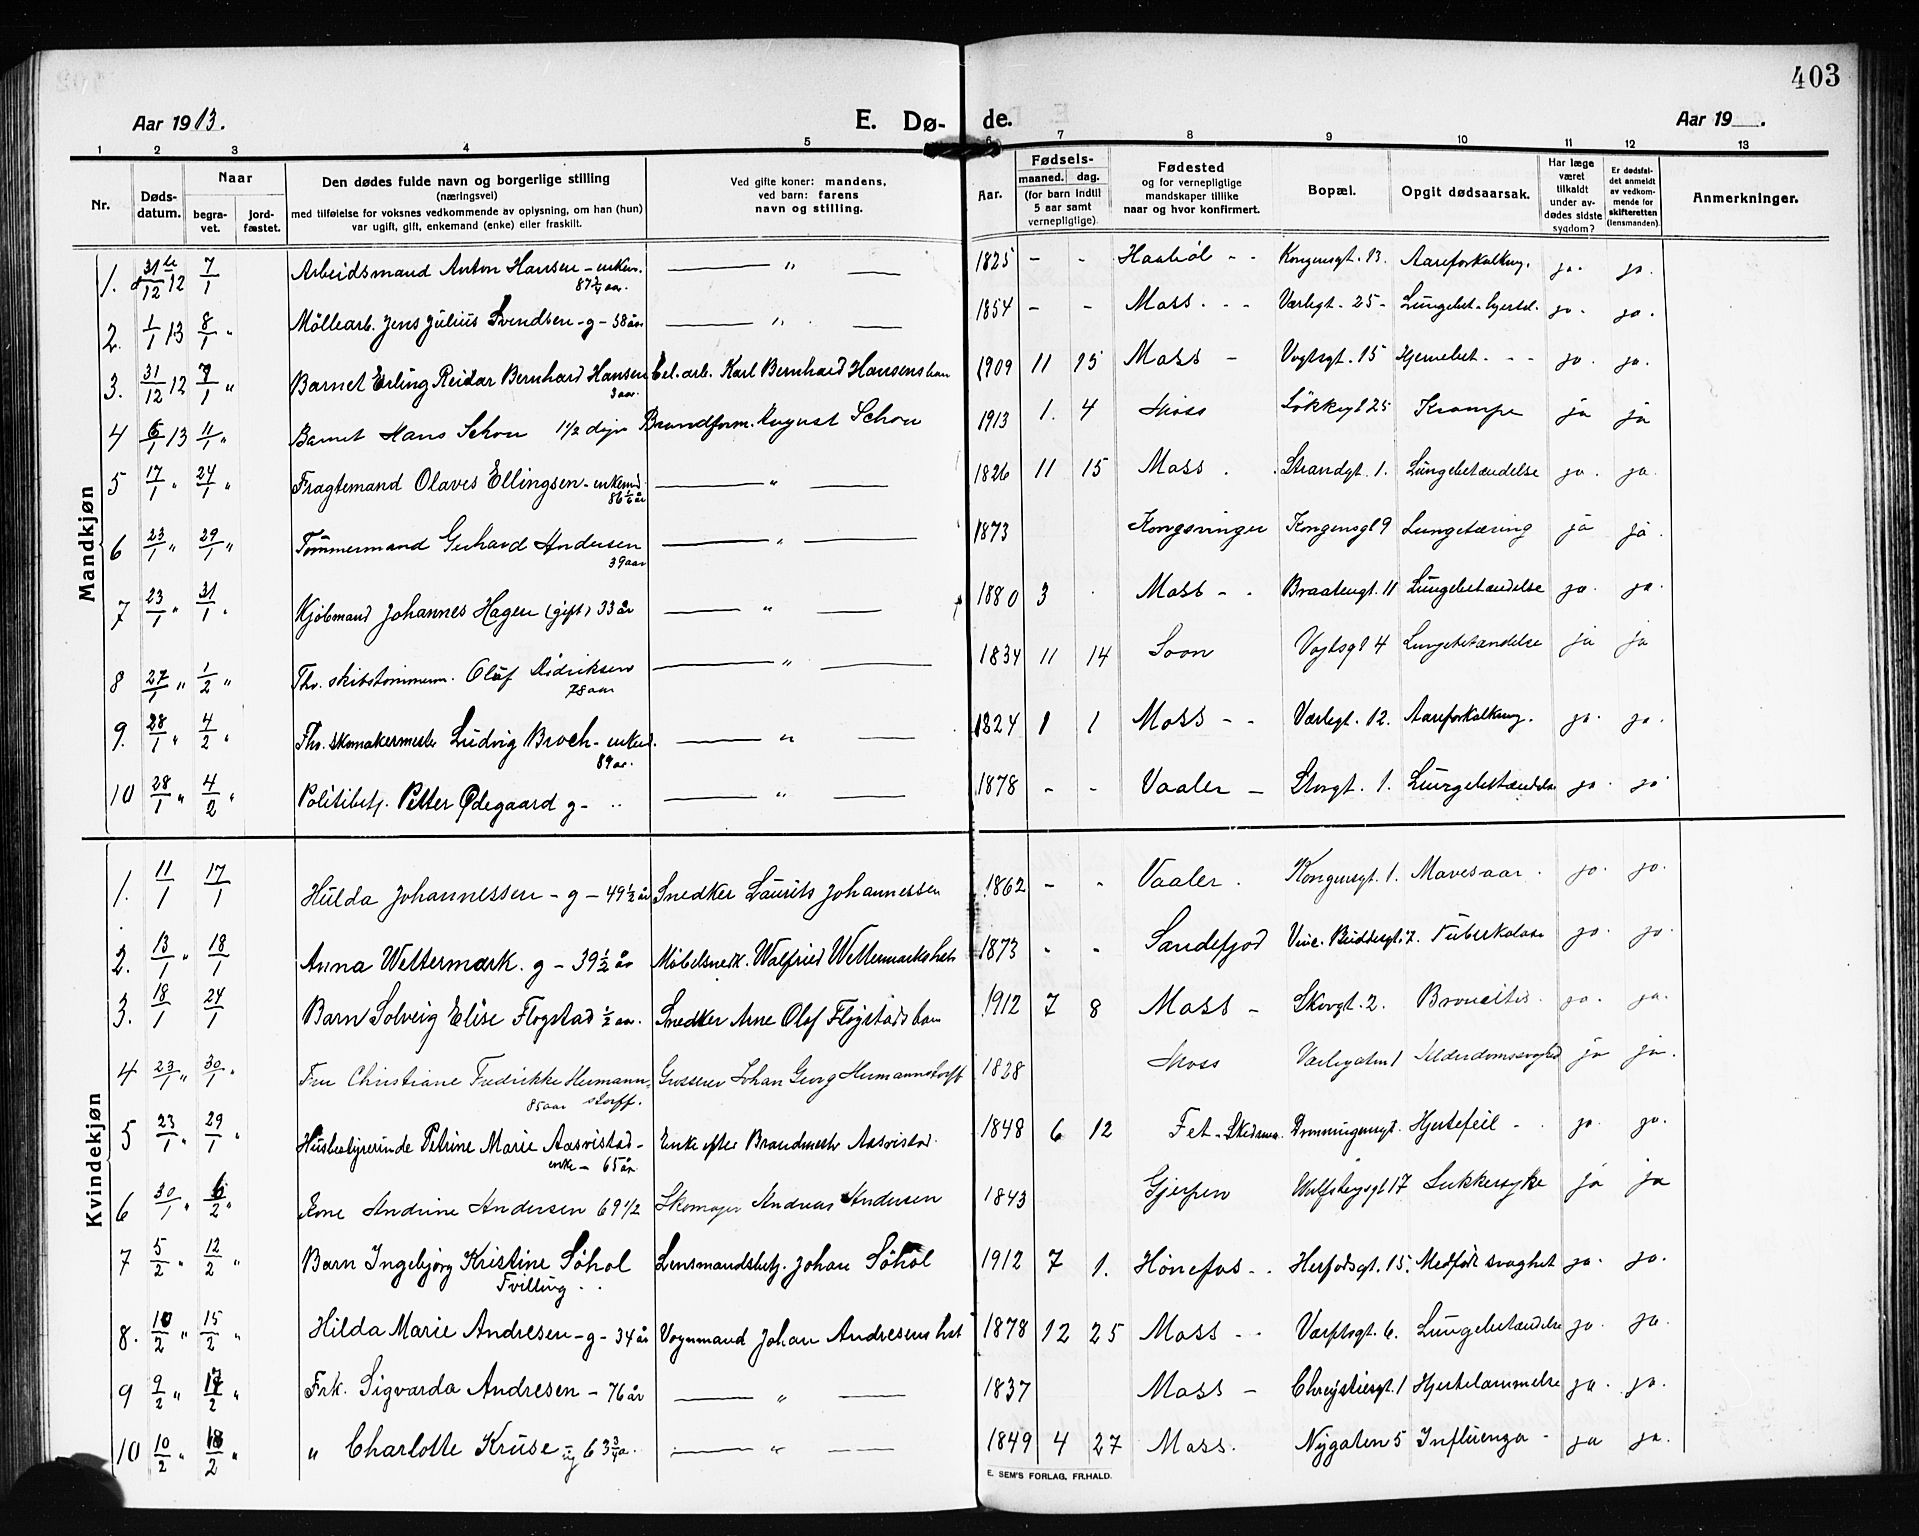 403
Aar 1913. E. Dø- de. Aar 19 .
1 2 3 4 5 6 7 8 9 10 11 12 13
Nr. Dødsdatum. Naar begravet. jordfæstet. Den dødes fulde navn og borgerlige stilling (næringsvei) med tilføielse for voksnes vedkommende av oplysning, om han (hun) var ugift, gift, enkemand (enke) eller fraskilt. Ved gifte koner: mandens, ved barn: farens navn og stilling. Aar. Fødsels- maaned. dag. (for barn indtil 5 aar samt vernepligtige). Fødested og for vernepligtige mandskaper tillike naar og hvor konfirmert. Bopæl. Opgit dødsaarsak. Har læge været tilkaldt under avdødes sidste sygdom? Er dødsfaldet anmeldt av vedkommende for skifteretten (lensmanden). Anmerkninger.
Mandkjøn
1. 31/12 12 7/1 Arbeidsmand Anton Hansen – enkem. – " – 1825 – – Haabøl – – Kongensgt. 13. Aareforkalkng. ja. ja.
87 1/4 aar.
2. 1/1 13 8/1 " Møllearb. Jens Julius Svendsen – g – 58 år – " – 1854 – – Moss. – – Værlegt. 25 – Lungebet. hjertel. ja. ja.
3. 31/12 12 7/1 " Barnet Erling Reidar Bernhard Hansen Cel. arb. Karl Bernhard Hansens barn 1909 11 15 Moss – Vogtsgt. 15 Hjernebet. – – ja. ja.
3 aar.
4 6/1 13 11/1 " Barnet Hans Schou 1 1/2 døgn Brandform. August Schou 1913 1. 4 Moss Løkkegt 25 Krampe ja ja
5 17/1 " 24/1 " Fragtemand Olaves Ellingsen – enkemd. – " – 1826 11 15 Moss. Strandgt. 1. Lungebetændelse ja. ja.
86 1/6 år
6 23/1 " 29/1 " Tømmermand Gerhard Andersen – " – 1873 Kongsvinger Kongensgt 9 Lungetæring ja ja.
39 aar
7 23/1 " 31/1 " Kjøbmand Johannes Hagen (gift) 33 år – " – 1880 3 . Moss – – Braatengt. 11 Lungebetændelse ja. ja.
8 27/1 " 1/2 " Fhv. skibstømmerm. Oluf Didriksen – " – 1834 11 14 Soon Vogtsgt 4 Lungebetændelse ja ja
78 aar
9. 28/1 " 4/2 " Fhv. skomakermester Ludvig Broch – enkemd. – " – 1824 1 1 Moss – – Værlegt. 12. Aareforkalkng. ja. ja.
89 ar.
10 28/1 " 4/2 " Politibetj. Petter Ødegaard g – .. – " – 1878 – – Vaaler – Storgt. 1. Lungebetændelse ja. ja
Kvindekjøn
1. 11/1 17/1 Hulda Johannessen – g – 49 1/2 år Snedker Laurits Johannessen 1862 – – Vaaler. Kongensgt. 1. Mavesaar. ja. ja.
2. 13/1 " 18/1 Anna Wettermark. g – 39 1/2 år Møbelsnedk. Walfried Wettermarks hst 1873 - - Sandefjod Vinc. Buddesgt. 7. Tuberkulose ja. ja.
3. 18/1 24/1 Barn Solveig Elise Flogstad 1/2 aar. Snedker Arne Olaf Flogstads barn 1912 7 8 Moss – Skovgt. 2. Broncitis. ja. ja.
4 23/1 " 30/1 " Fru Christiane Fredrikke Hermann- Grosserer Johan Georg Hermannstorff 1828 Moss Værlegaten 1 Alderdomssvaghed ja ja.
85 aar storff.
5 23/1 " 29/1 " Husbestyrerinde Petrine Marie Aasvistad – Enke efter Brandmester Aasvistad. 1848 6 12 Fet – Skedsmo. Dronningensgt. Hjertefeil – . ja. ja.
enke – 65 år
6 30/1 " 6/2 " Kone Andrine Andersen 69 1/2 Skomager Andreas Andersen 1843 Gjerpen Wulfsbergsgt 17 Sukkersyke ja ja
7 5/2 " 12/2 " Barn Ingebjørg Kristine Søhol Lensmandsbetj. Johan Søhol 1912 7 1. Hønefos – . Herfødsgt. 15. Medfødt svaghet ja. ja.
Tvilling . .
8. 10/2 " 15/2 " Hilda Marie Andresen – g – 34 år Vognmand Johan Andresens hst 1878 12 25 Moss – . Værftsgt. 6. Lungebetændelse ja. ja.
9 9/2 " 17/2 " Frk. Sigvarda Andresen – 76 år – " – 1837 Moss – Chrystiesgt. 1 Hjertelammelse ja. ja.
10 10/2 " 18/2 " " Charlotte Kruse ug 63 3/4 a. – " – 1849 4 27 Moss. Nygaten 5 Influenza – ja ja.
E. SEM'S FORLAG, FR.HALD.